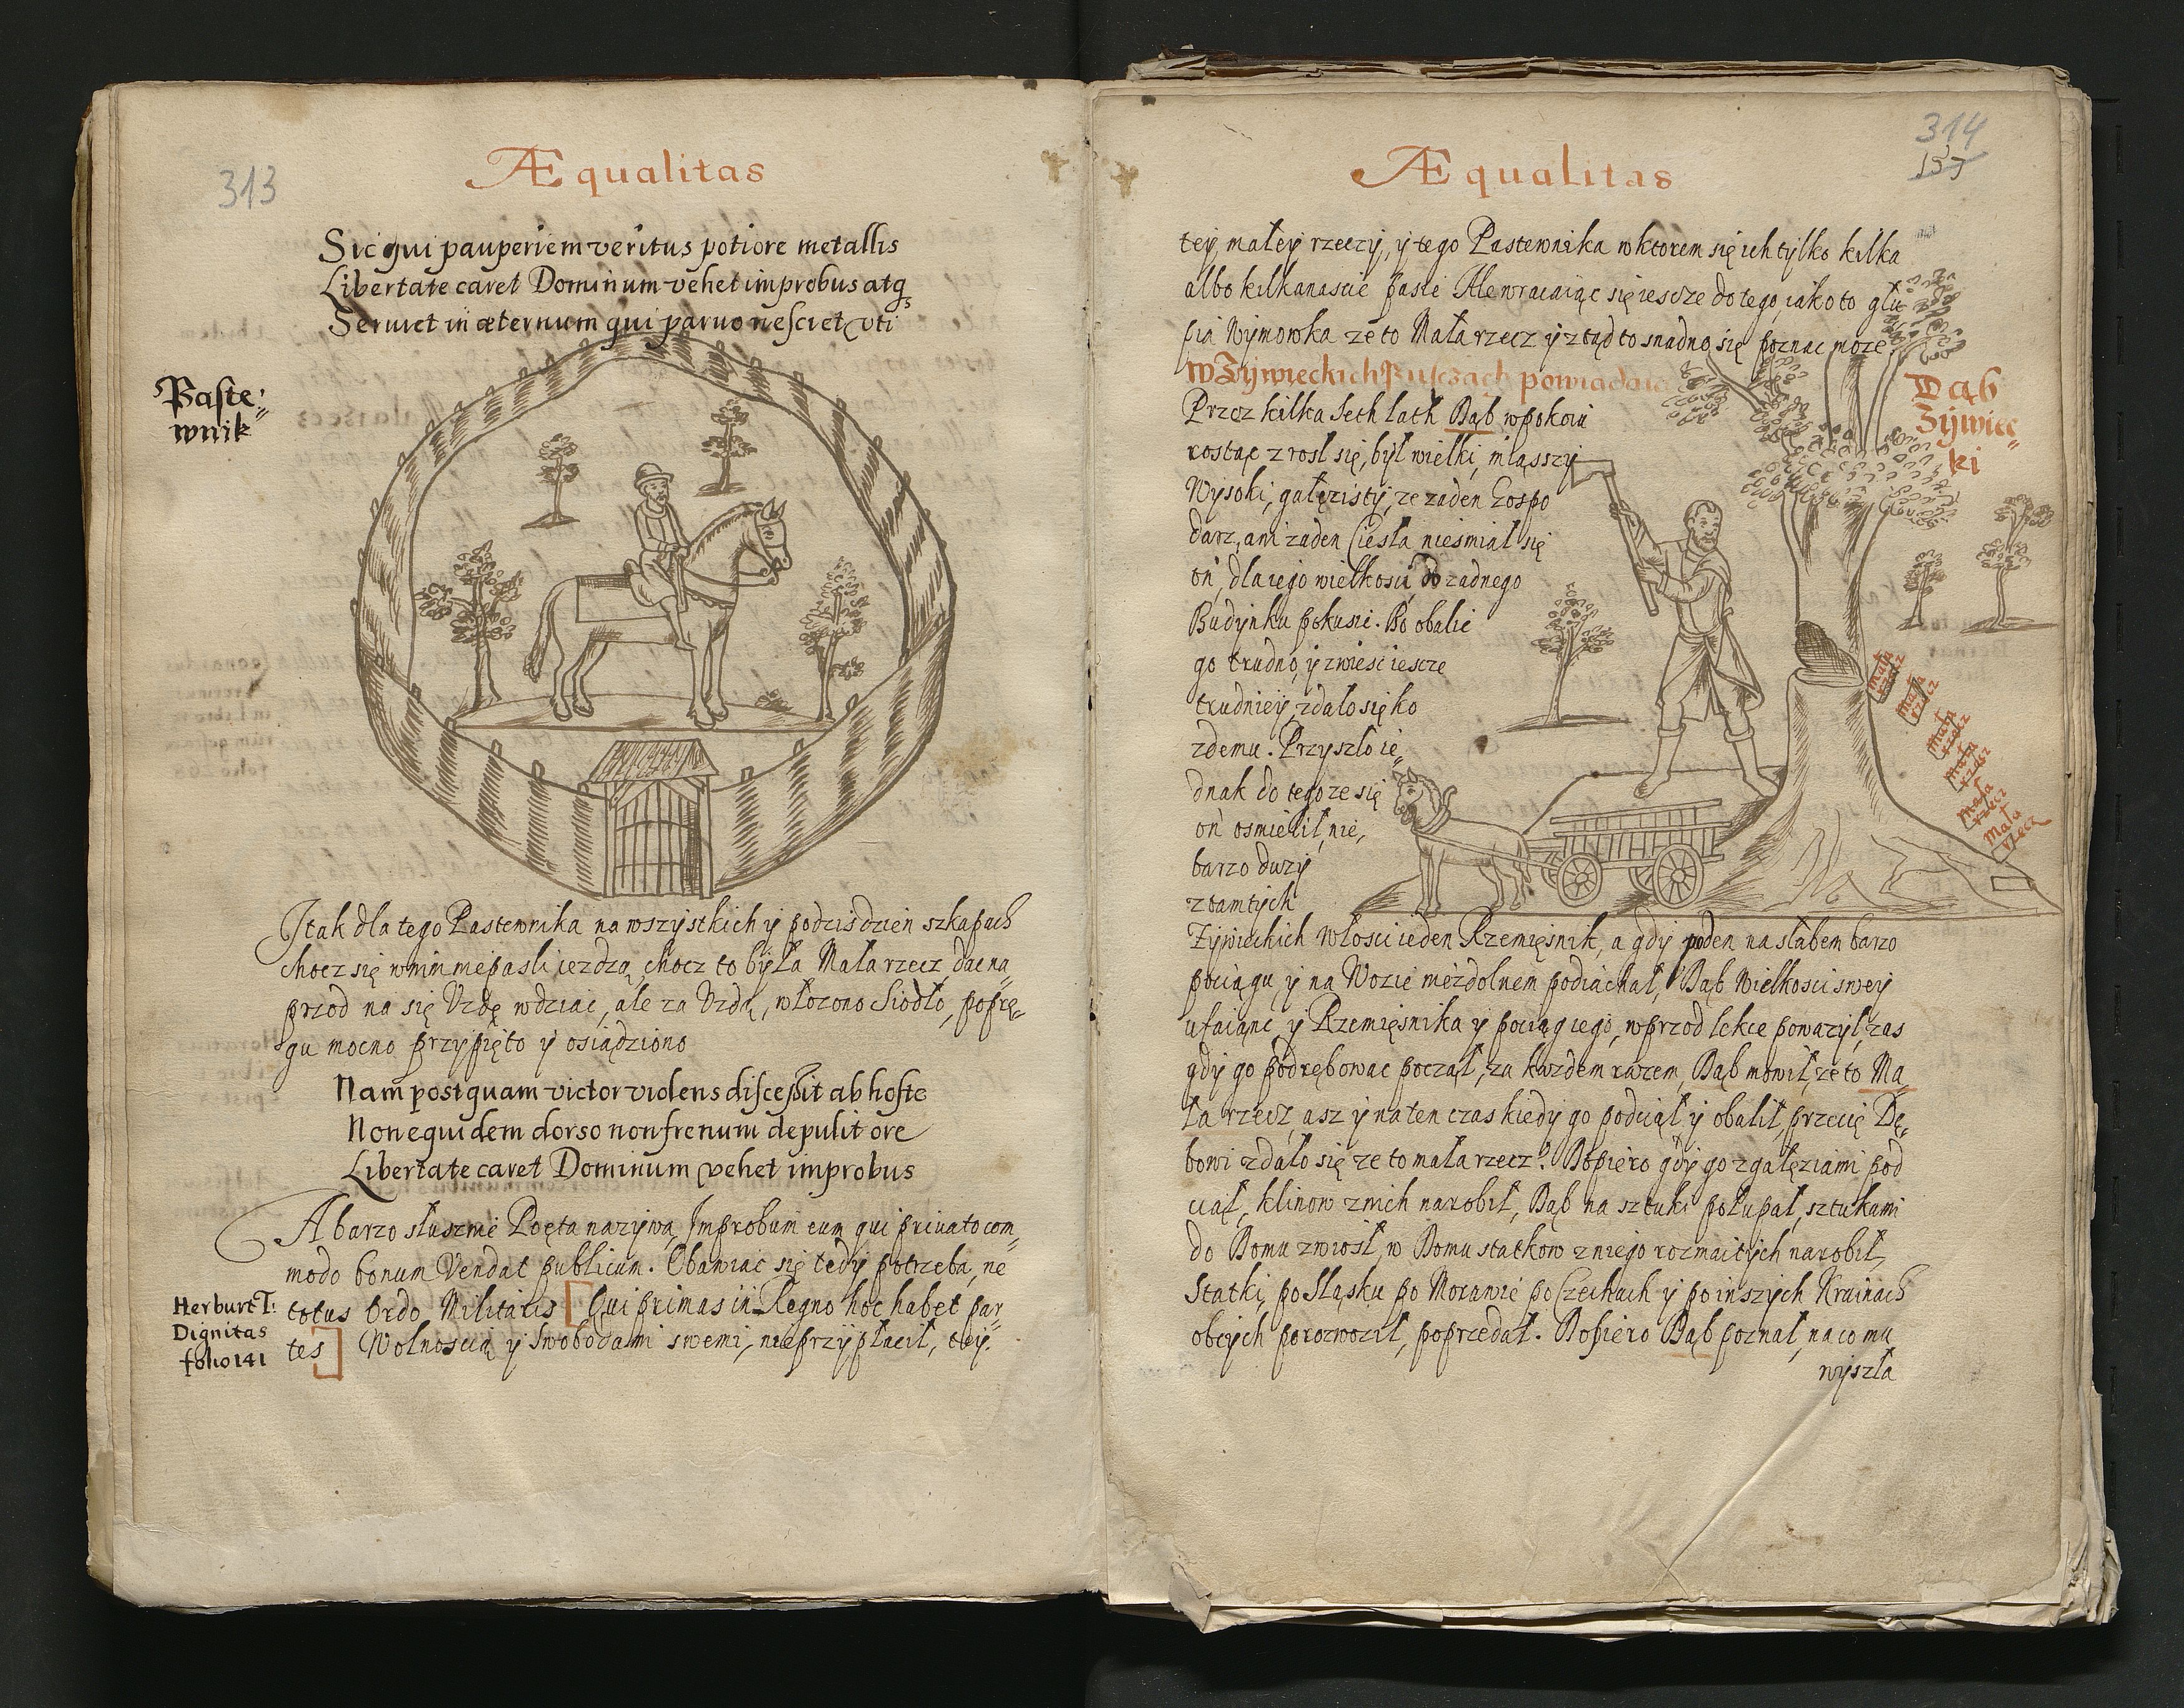 313
Æqualitas
Sic qui pauperiem veritus potiore metallis
Libertate caret Dominum vehet improbus atq3
Seruiet in æternum qui paruo nesciet vti
Paste:
wnik
I tak dla tego Pastewnika na wszystkich y podzis dzien szkapach
chocz się w nim niepasli iezdzą, chocz to była Mała rzecz, dac na
przod na się Uzdę wdziac, ale za Uzdą, włozono Siodło, poprę„
gu mocno przypięto y osiądziono
Nam postquam victor violens discessit ab hoste
Non equidem dorso non frenum depulit ore
Libertate caret Dominum vehet improbus
A barzo słusznie Poęta nazywa, Improbum eum qui priuato com„
modo bonum Vendat publicum. Obawiac się tedy potrzeba, ne
totus Ordo Militaris [Qui primas in Regno hoc habet par„
tes] Wolnoscią y Swobodami swemi, nieprzypłacił, tey.
Herburt T:
Dignitas
folio 141
314
157
Æqualitas
tey małey rzeczy, y tego Pastewnika w ktorem się ich tylko kilka
albo kilkanascie pasie Ale wracaiąc się iescze do tego, iako to głu
pia Wymowka ze to Mała rzecz y ztąd to snadno się poznac moze
w Zywieckich Pusczach powiadaią
Dąb
Zywiec„
ki
Przez kilka Seth lath Dąb w pokoiu
rostąc zrosł się, był wielki, miąsszy
Wysoki, gałęzisty, ze zaden Gospo
darz, ani zaden Ciesla niesmiał się
oń, dla iego wielkosci do zadnego
Budynku pokusic. Bo obalic
go trudno, y zwiesc iescze
trudniey, zdało się ko
zdemu. Przyszło ie„
dnak do tego ze się
oń osmielił, nie,
barzo duzy
z tamtych
mała
rzecz
mała
rzecz
mała
rzecz
mała
rzecz
mała
rzecz
mała
rzecz
Zywieckich Włosci ieden Rzemięsnik, a gdy poden na słabem barzo
pociągu y na Wozie niezdolnem podiachał, Dąb Wielkosci swey
ufaiąnc, y Rzemięsnika y pociąg iego, w przod lekce powazył, zas
gdy go podrębowac począł, za kazdem razem, Dąb mowił, ze to Ma
ła rzecz, asz y na ten czas kiedy go podciął y obalił, przecię Dę„
bowi zdało się ze to mała rzecz. Dopiero gdy go z gałęziami pod
ciął, klinow z nich narobił, Dąb na sztuki połupał, sztukami
do Domu zwiosł, w Domu statkow z niego rozmaitych narobił,
Statki, po Sląsku po Morawie po Czechach y po inszych Krainach
obcych porozwoził, poprzedał. Dopiero Dąb poznał, na co mu
wyszła